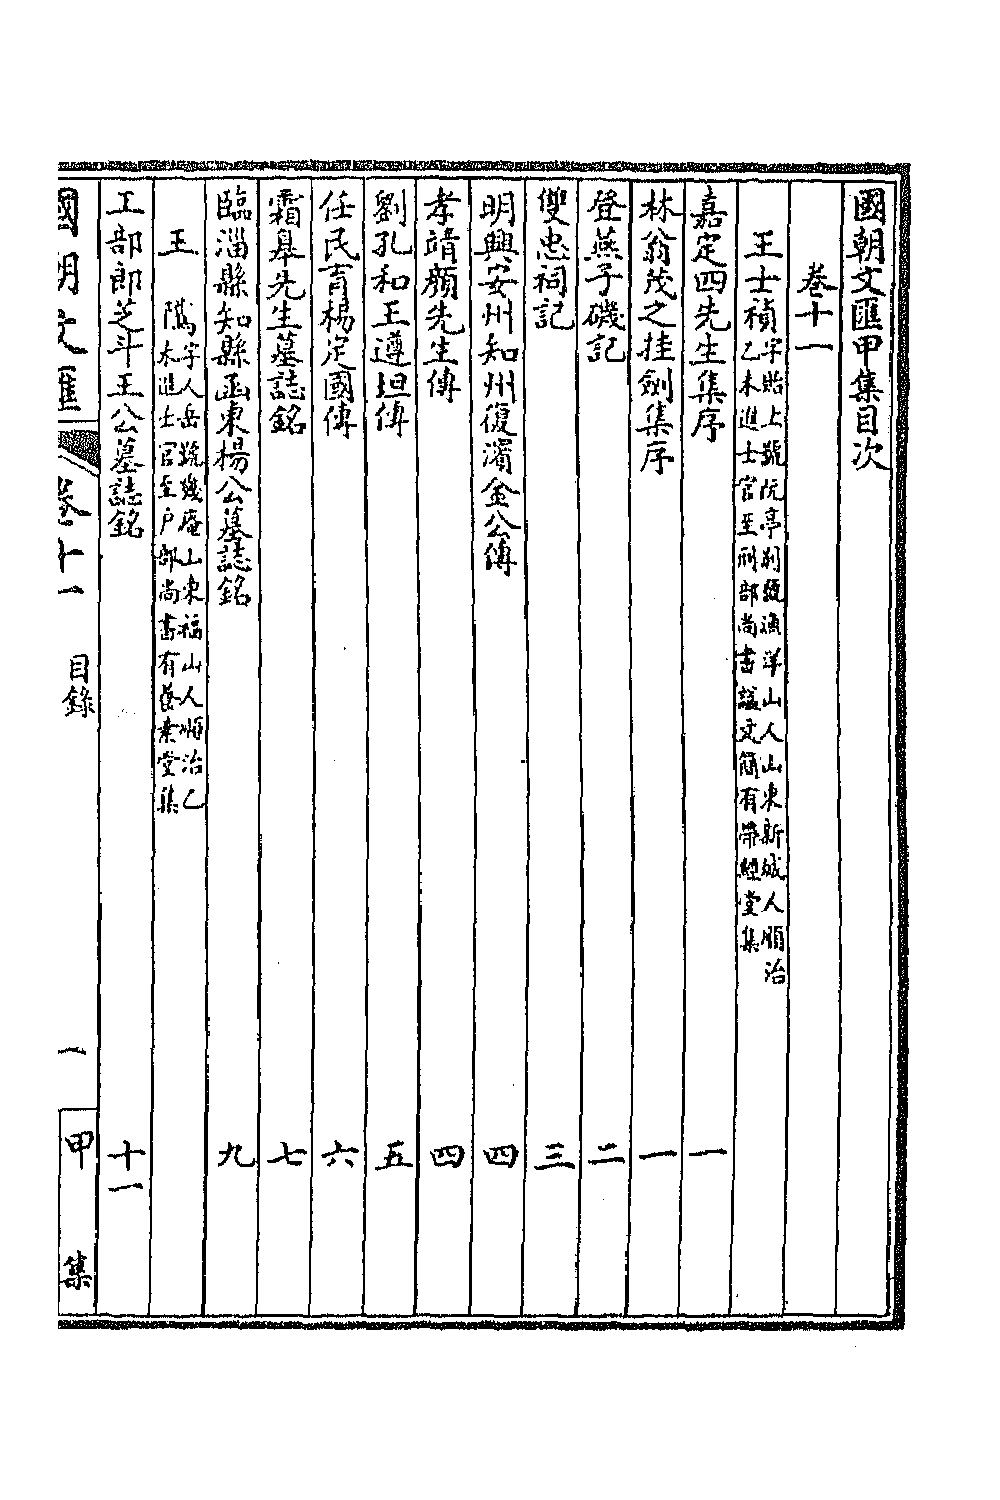 國朝文匯甲集目次
卷十一
王士禎 字貽上號阮亭別號漁洋山人山東新城人順治
乙未進士官至刑部尚書諡文簡有帶經堂集
嘉定四先生集序 一
林翁茂之挂劍集序 一
登燕子磯記 二
雙忠祠記 三
明興安州知州復濱金公傳 四
孝靖顏先生傳 四
劉孔和王遵坦傳 五
任民育楊定國傳 六
霜皋先生墓誌銘 七
臨淄縣知縣函東楊公墓誌銘 九
王 隲 字人岳號幾庵山東福山人順治乙
未進士官至戶部尚書有養素堂集
工部郎芝斗王公墓誌銘 十一
國朝文匯 卷十一 目錄 一 甲集